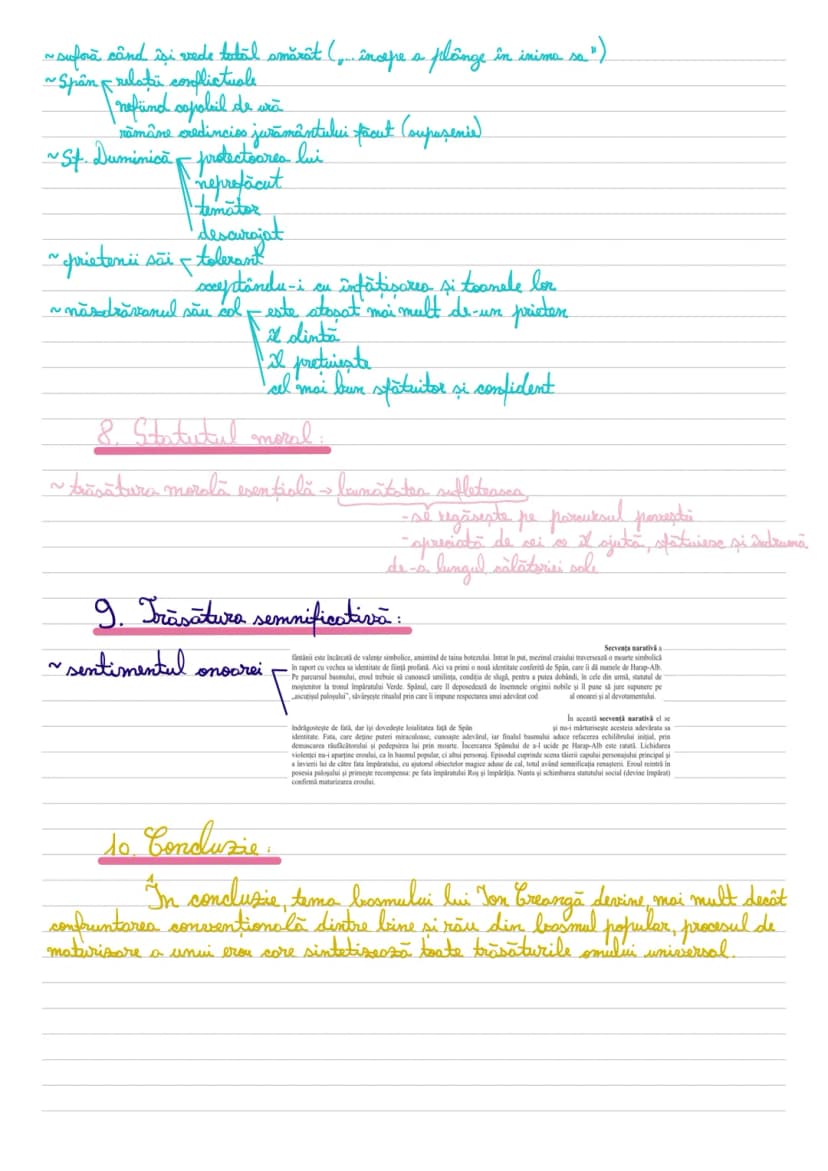 ~ suferă când își vede tatăl amărât („... începe a plânge în inima sa")
~ Spân relații conflictuale
nefiind capabil de ură
rămâne credincios jurământului făcut (supușenie)
~ Sf. Duminică protectoarea lui
neprefăcut
temător
descurajat
~ prietenii săi tolerant
acceptându-i cu înfățișarea și toanele lor
~ năzdrăvanul său cal este atașat mai mult de-un prieten
îl alintă
îl prețuiește
cel mai bun sfătuitor și confident
8. Statutul moral:
~ trăsătura morală esențială → bunătatea sufletească
- se regăsește pe parcursul poveștii
- apreciată de cei ce îl ajută, sfătuiesc și îndrumă
de-a lungul călătoriei sale
9. Trăsătura semnificativă:
~ sentimentul onoarei
Secvența narativă a
fântânii este încărcată de valențe simbolice, amintind de taina botezului. Intrat în puț, mezinul craiului traversează o moarte simbolică
în raport cu vechea sa identitate de ființă profană. Aici va primi o nouă identitate conferită de Spân, care îi dă numele de Harap-Alb.
Pe parcursul basmului, eroul trebuie să cunoască umilința, condiția de slugă, pentru a putea dobândi, în cele din urmă, statutul de
moștenitor la tronul împăratului Verde. Spânul, care îl deposedează de însemnele originii nobile și îl pune să jure supunere pe
„ascuțișul paloșului", săvârșește ritualul prin care îi impune respectarea unui adevărat cod al onoarei și al devotamentului.
În această secvență narativă el se
îndrăgostește de fată, dar își dovedește loialitatea față de Spân și nu-i mărturisește acesteia adevărata sa
identitate. Fata, care deține puteri miraculoase, cunoaște adevărul, iar finalul basmului aduce refacerea echilibrului inițial, prin
demascarea răufăcătorului și pedepsirea lui prin moarte. Încercarea Spânului de a-l ucide pe Harap-Alb este ratată. Lichidarea
violenței nu-i aparține eroului, ca în basmul popular, ci altui personaj. Episodul cuprinde scena tăierii capului personajului principal și
a învierii lui de către fata împăratului, cu ajutorul obiectelor magice aduse de cal, totul având semnificația renașterii. Eroul reintră în
posesia paloșului și primește recompensa: pe fata împăratului Roș și împărăția. Nunta și schimbarea statutului social (devine împărat)
confirmă maturizarea eroului.
10. Concluzie:
În concluzie, tema basmului lui Ion Creangă devine, mai mult decât
confruntarea convențională dintre bine și rău din basmul popular, procesul de
maturizare a unui erou care sintetizează toate trăsăturile omului universal.